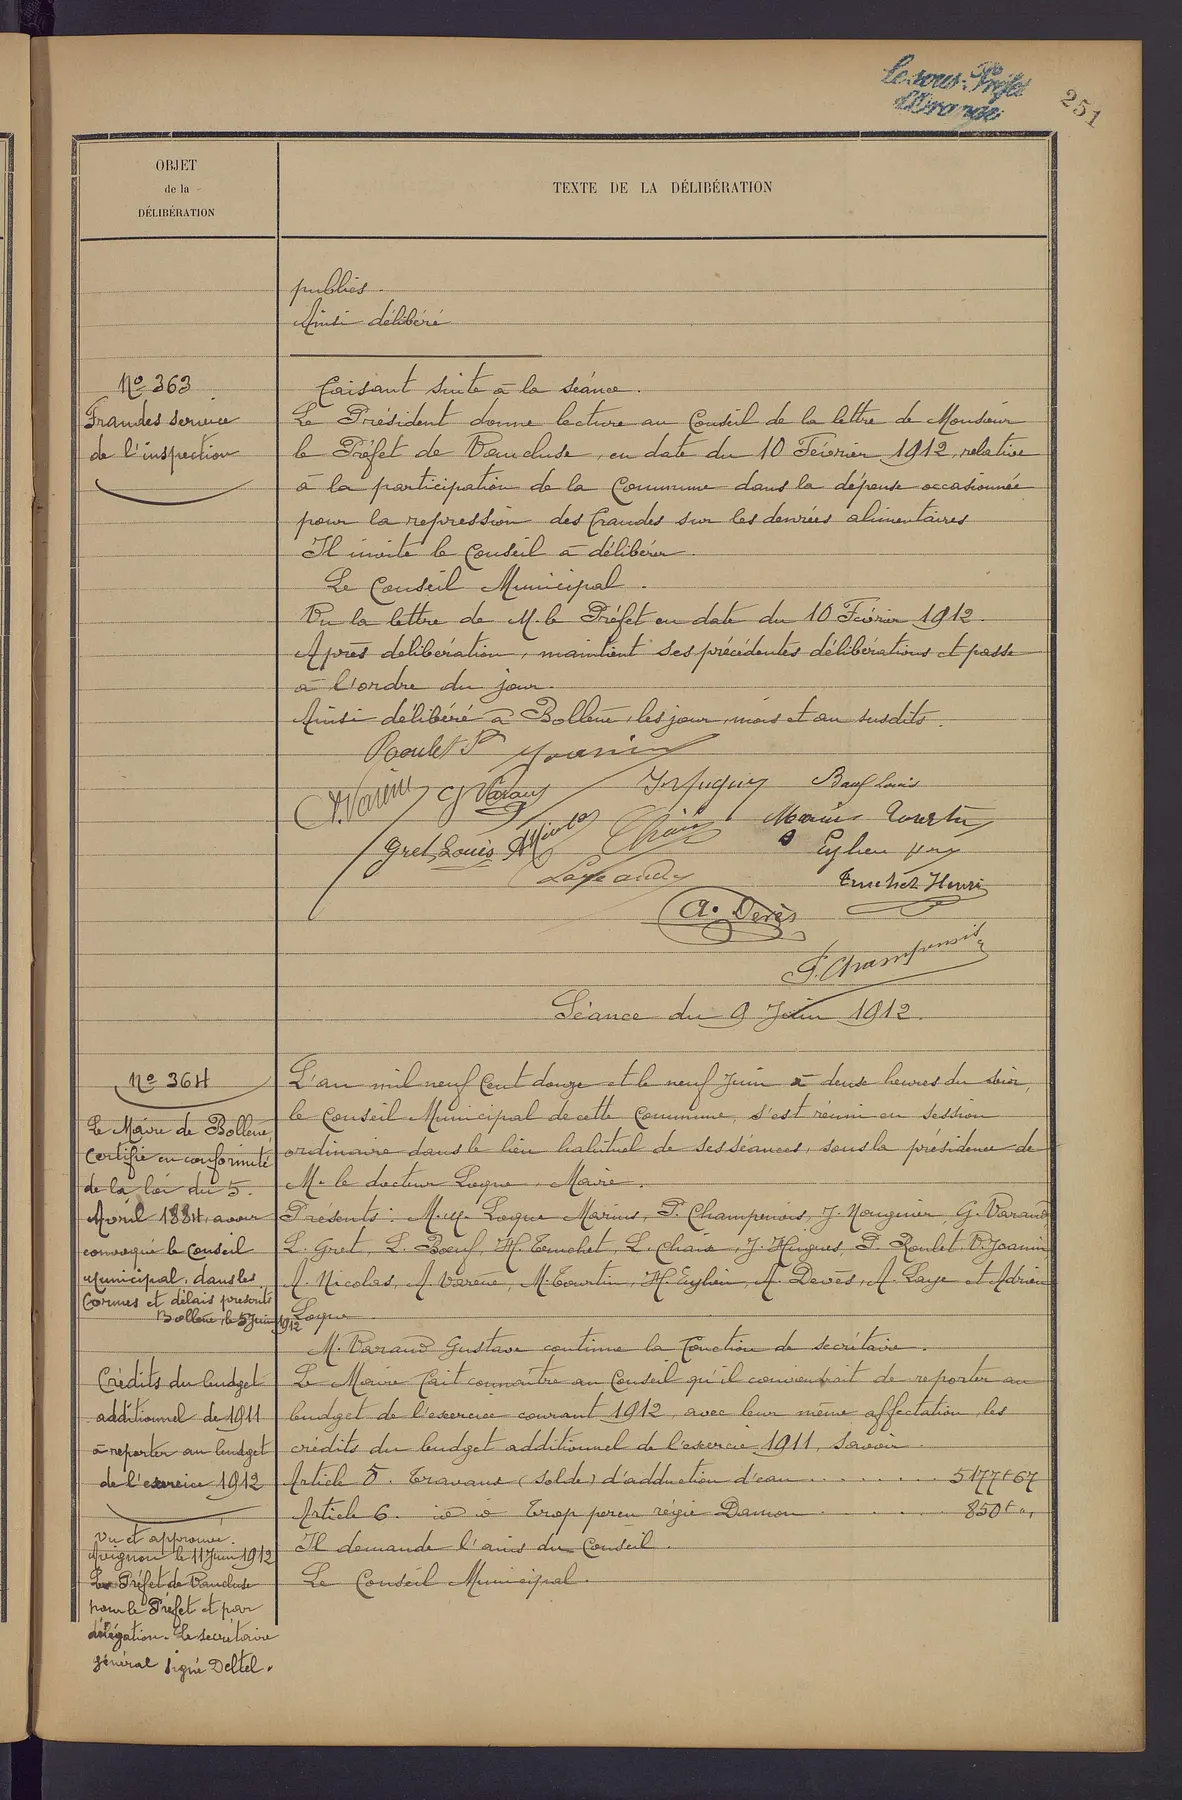 Le sous-Préfet
d'Orange
251
OBJET
de la
DÉLIBÉRATION
TEXTE DE LA DÉLIBÉRATION
publics.
Ainsi délibéré
No 363
Fraudes service
de l'inspection
Faisant suite à la séance.
Le Président donne lecture au Conseil de la lettre de Monsieur
le Préfet de Vaucluse, en date du 10 Février 1912, relative
à la participation de la Commune dans la dépense occasionnée
pour la repression des fraudes sur les denrées alimentaires
Il invite le Conseil à délibérer.
Le Conseil Municipal.
Vu la lettre de M. le Préfet en date du 10 Février 1912.
Après délibération, maintient ses précédentes délibérations et passe
à l'ordre du jour.
Ainsi délibéré à Bollène, les jour, mois et an susdits.
Roulet P. Joanin
A. Varène G. Varaud J. Hugues Bœuf Louis
Gret Louis A. Nicolas Chaix Marius Tourtin
Laye André Eylieu
Truchet Henri
A. Devès
P. Champenois
Séance du 9 Juin 1912.
No 364
Le Maire de Bollène,
Certifie en conformité
de la loi du 5.
Avril 1884, avoir
convoqué le Conseil
Municipal, dans les
formes et délais prescrits
Bollène, le 5 Juin 1912
L'an mil neuf Cent douze et le neuf Juin à deux heures du soir,
le Conseil Municipal de cette Commune, s'est réuni en session
ordinaire dans le lieu habituel de ses séances, sous la présidence de
M. le docteur Loque, Maire.
Présents: M.M. Loque Marius, P. Champenois, J. Nouguier, G. Varaud,
L. Gret, L. Bœuf, H. Truchet, L. Chaix, J. Hugues, P. Roulet, V. Joanin
A. Nicolas, A. Varène, M. Tourtin, H. Eylieu, A. Devès, A. Laye et Adrien
Loque.
M. Varaud Gustave continue la fonction de secrétaire.
Crédits du budget
additionnel de 1911
à reporter au budget
de l'exercice 1912
Le Maire fait connaître au Conseil qu'il conviendrait de reporter au
budget de l'exercice courant 1912, avec leur même affectation, les
crédits du budget additionnel de l'exercice 1911, savoir.
Article 5. Travaux (solde) d'adduction d'eau 5177f67
Article 6. id d Trop perçu régie Damon 850f "
Il demande l'avis du Conseil.
Le Conseil Municipal.
Vu et approuvé.
Avignon le 11 Juin 1912
Le Préfet de Vaucluse
pour le Préfet et par
délégation. Le secrétaire
général signé Deltel.